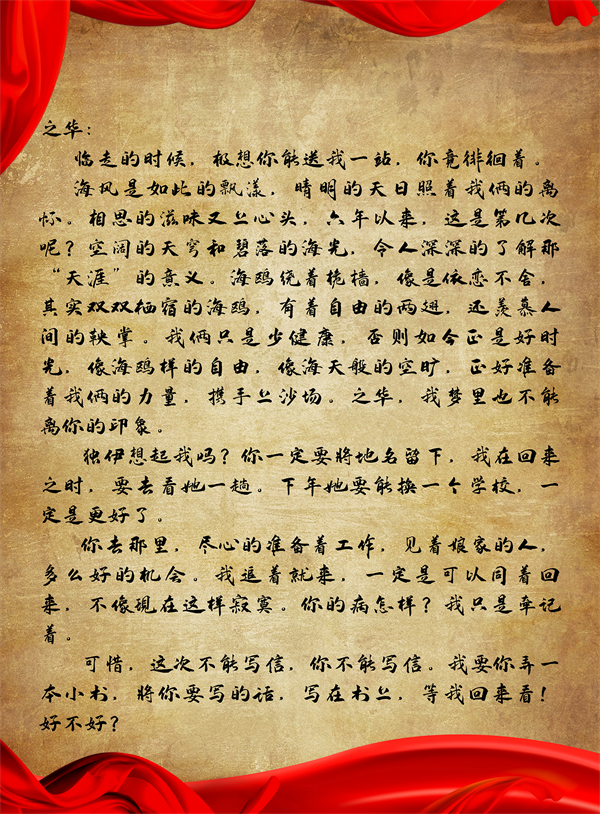 之华：
临走的时候，极想你能送我一站，你竟徘徊着。
海风是如此的飘漾，晴明的天日照着我俩的离
怀。相思的滋味又上心头，六年以来，这是第几次
呢？空阔的天穹和碧落的海光，令人深深的了解那
“天涯”的意义。海鸥绕着桅樯，像是依恋不舍，
其实双双栖宿的海鸥，有着自由的两翅，还羡慕人
间的鞅掌。我俩只是少健康，否则如今正是好时
光，像海鸥样的自由，像海天般的空旷，正好准备
着我俩的力量，携手上沙场。之华，我梦里也不能
离你的印象。
独伊想起我吗？你一定要将地名留下，我在回来
之时，要去看她一趟。下年她要能换一个学校，一
定是更好了。
你去那里，尽心的准备着工作，见着娘家的人，
多么好的机会。我追着就来，一定是可以同着回
来，不像现在这样寂寞。你的病怎样？我只是牵记
着。
可惜，这次不能写信，你不能写信。我要你弄一
本小书，将你要写的话，写在书上，等我回来看！
好不好？